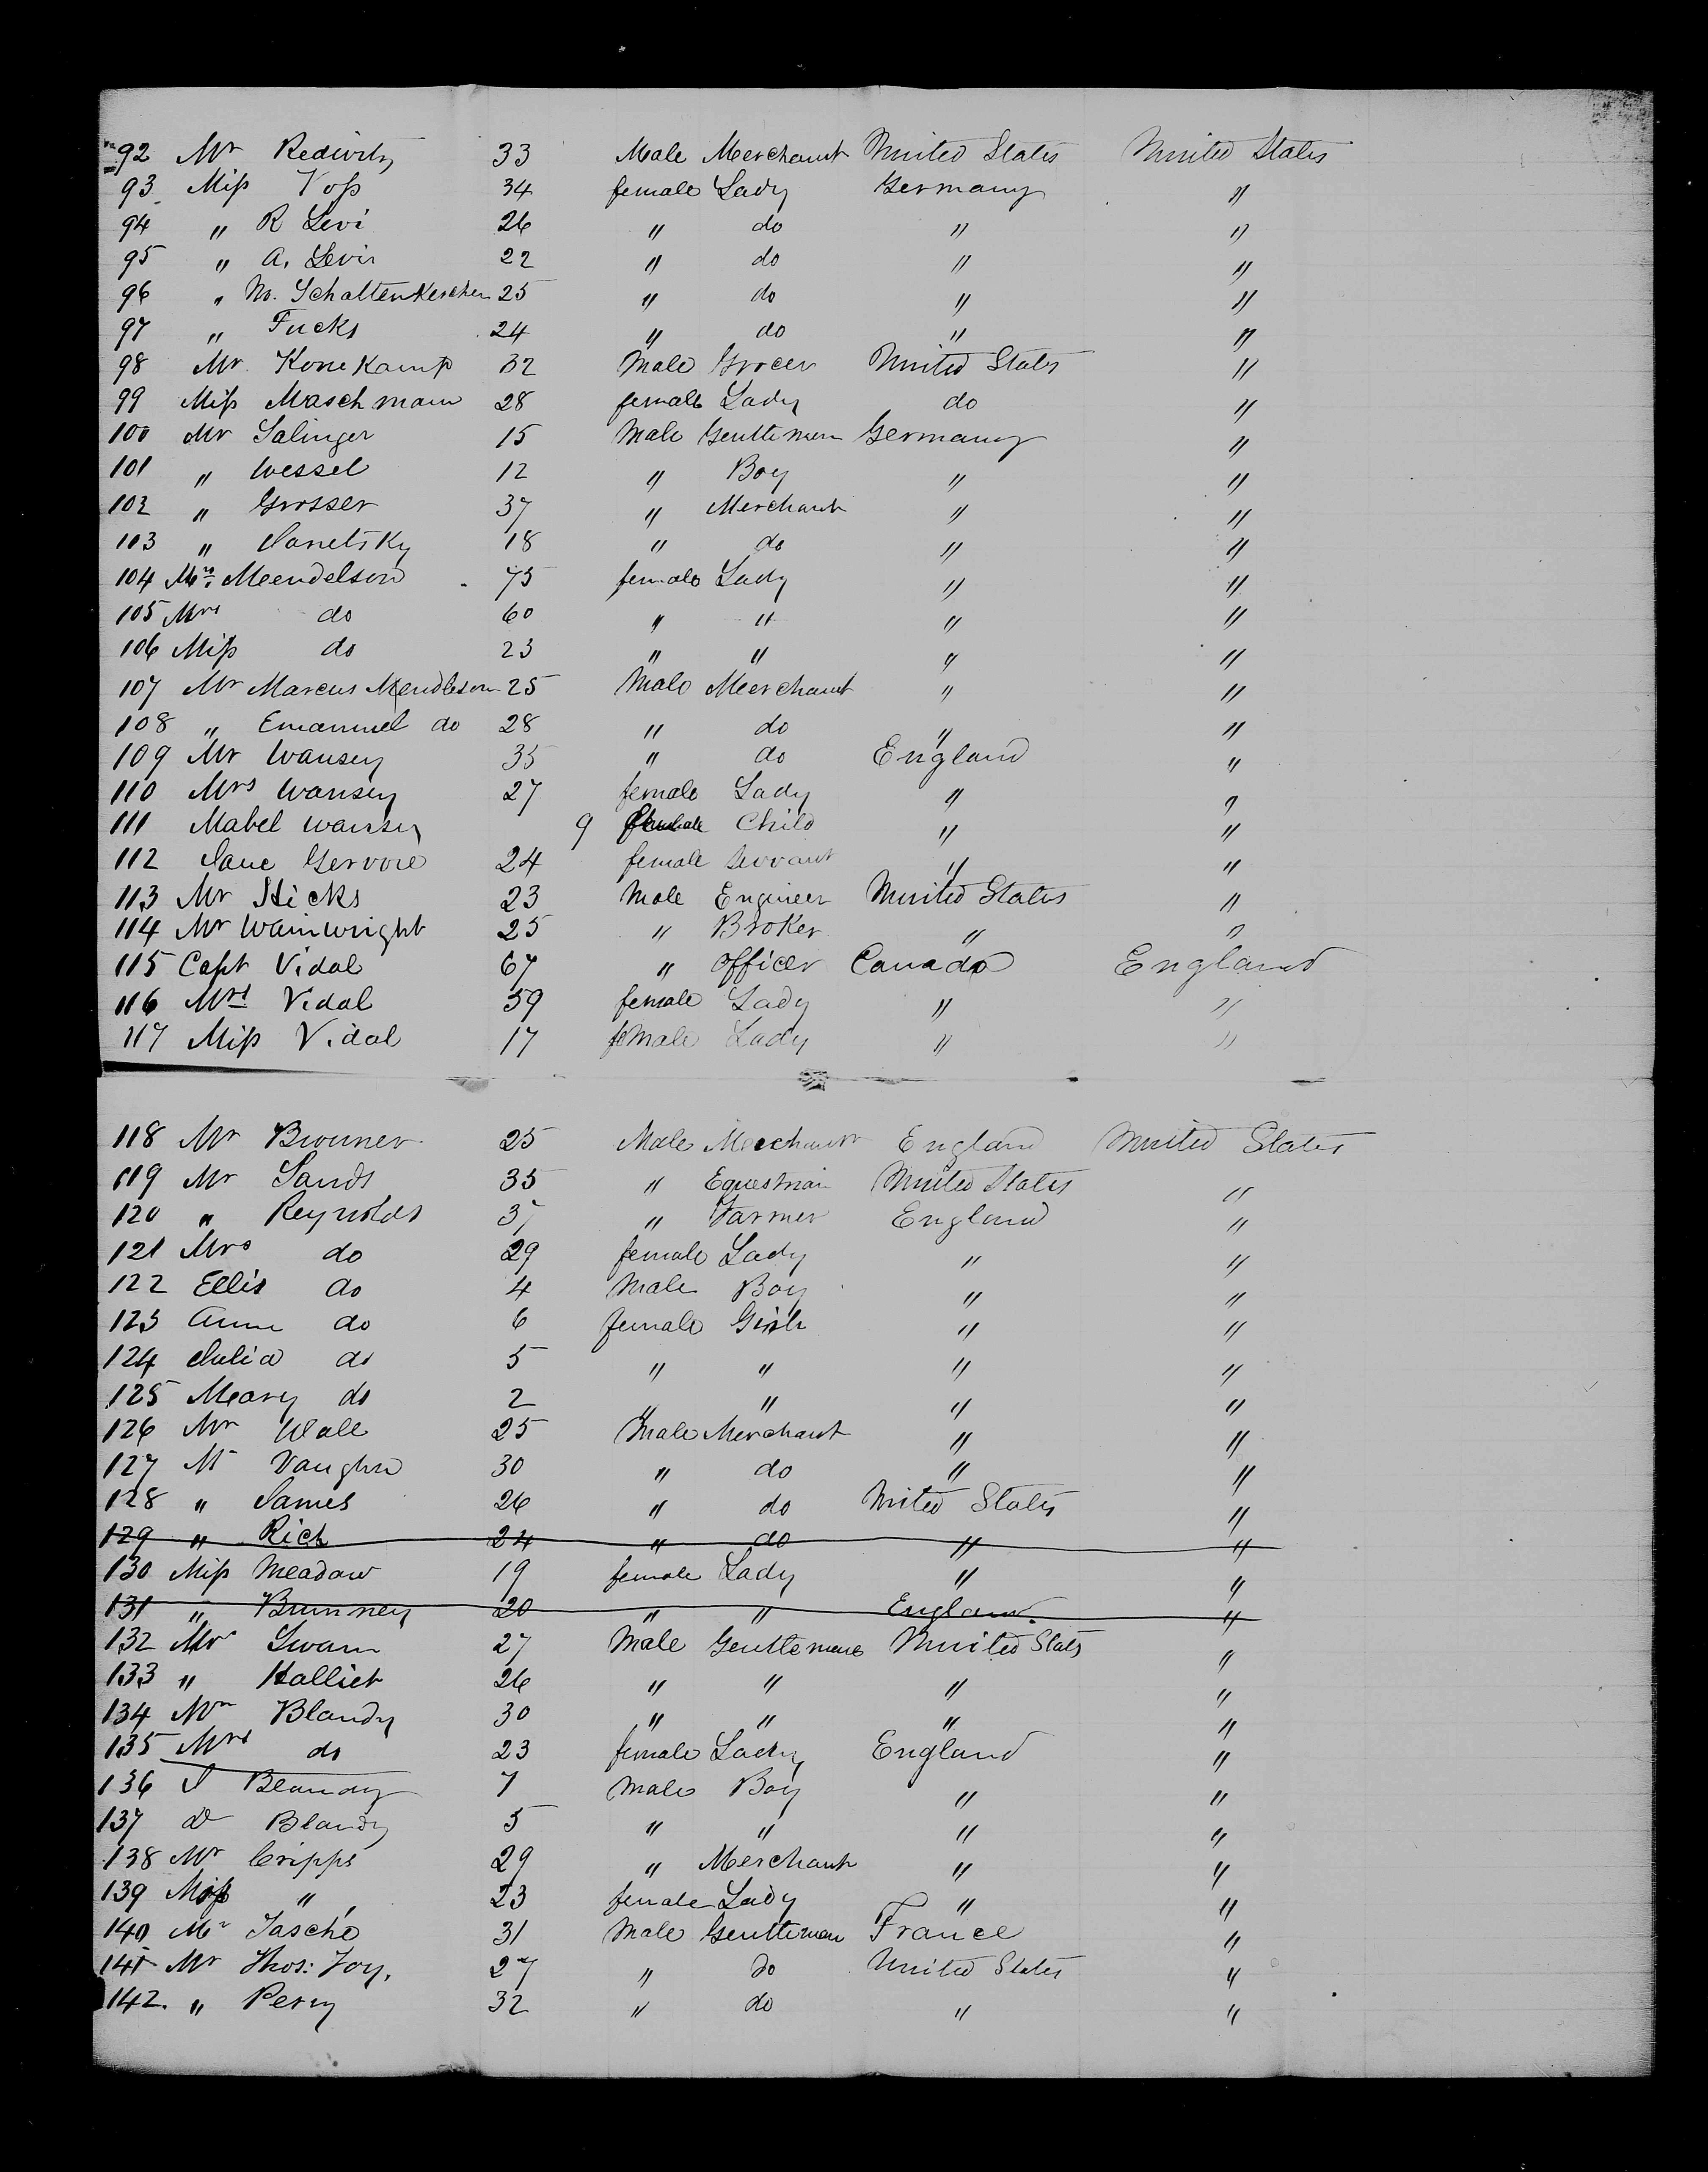 92 Mr Redwitz 33 Male Merchant United States United States
93 Miss Voss 34 female Lady Germany "
94 " R Levi 26 " do " "
95 " A. Levin 22 " do " "
96 " M. Schattenkerchen 25 " do " "
97 " Fucks 24 " do " "
98 Mr Konekamp 32 Male Grocer United States "
99 Miss Maschmann 28 female Lady do "
100 Mr Salinger 15 Male Gentleman Germany "
101 " Wessel 12 " Boy " "
102 " Grosser 37 " Merchant " "
103 " Janetsky 18 " do " "
104 Mrs. Meendelson 75 female Lady " "
105 Mrs do 60 " " " "
106 Miss do 23 " " " "
107 Mr Marcus Mendleson 25 Male Meerchant " "
108 " Emanuel do 28 " do " "
109 Mr Wansey 35 " do England "
110 Mrs Wansey 27 female Lady " "
111 Mabel Wansey 9 female Child " "
112 Jane Gervore 24 female Servant " "
113 Mr Hicks 23 Male Engineer United States "
114 Mr Wainwright 25 " Broker " "
115 Capt Vidal 67 " officer Canada England
116 Mrs Vidal 59 female Lady " "
117 Miss Vidal 17 female Lady " "
118 Mr Brouner 25 Male Merchant England United States
119 Mr Sands 35 " Equestrian United States "
120 " Reynolds 37 " Farmer England "
121 Mrs do 29 female Lady " "
122 Ellis do 4 Male Boy " "
123 Anne do 6 female Girls " "
124 Julia do 5 " " " "
125 Meary do 2 " " " "
126 Mr Wall 25 Male Merchant " "
127 Mr Vaughn 30 " do " "
128 " James 26 " do United States "
129 " Rich 24 " do " "
130 Miss Meadow 19 female Lady " "
131 " Brunney 20 " " England. "
132 Mr Swann 27 Male Gentleman United States "
133 " Halliet 26 " " " "
134 Mr Blandy 30 " " " "
135 Mrs do 23 female Lady England "
136 J Blandy 7 Male Boy " "
137 D Blandy 5 " " " "
138 Mr Cripps 29 " Merchant " "
139 Miss " 23 female Lady " "
140 Mr Jasché 31 Male Gentleman France "
141 Mr Thos: Foy. 27 " do United States "
142. " Perry 32 " do " "